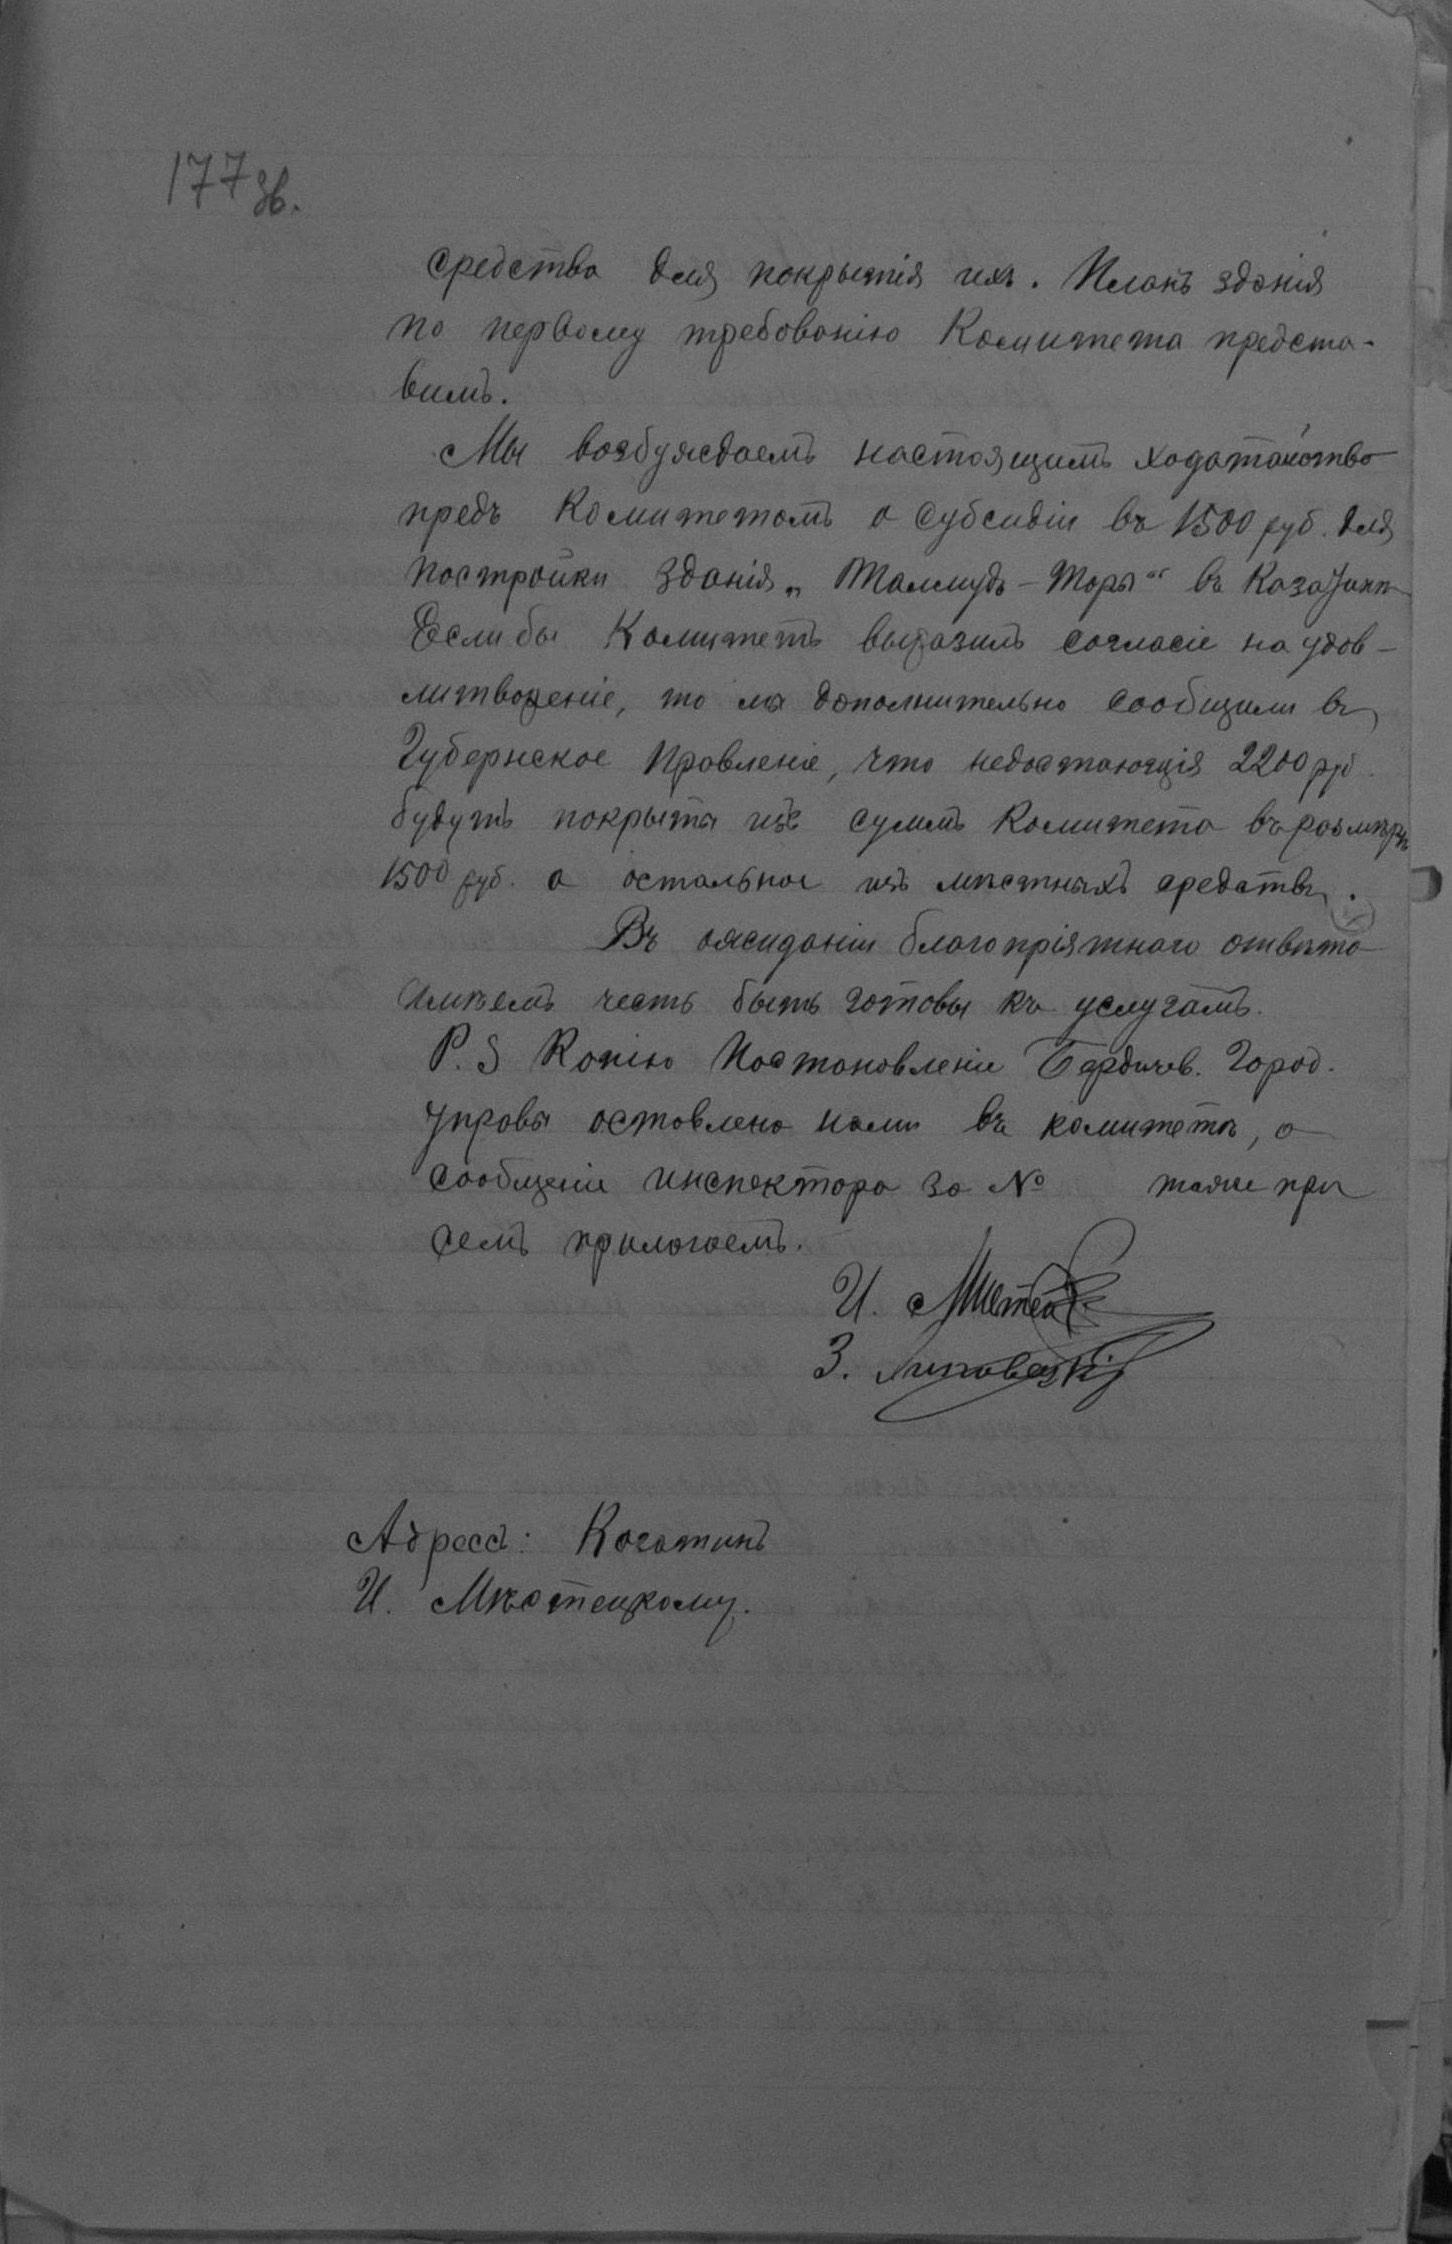 177 зв.
средства для покрытія ихъ. Планъ зданія
по первому требованію Комитета предста-
вимъ.
Мы возбуждаемъ настоящимъ ходатайство
предъ Комитетомъ о субсидіи въ 1500 руб. для
постройки зданія „Талмудъ-Торы“ въ
Если бы Комитетъ выразилъ согласіе на удов-
литвореніе, то мы дополнительно сообщили въ
Губернское Правленіе, что недостающія 2200 руб.
будутъ покрыты изъ суммъ Комитета въ размѣрѣ
1500 руб. а остальное изъ мѣстныхъ средствъ.
Въ ожиданіи благопріятнаго отвѣта
имѣемъ честь быть готовы къ услугамъ.
P. S Копію Постановленіе Бердичев. Город.
Управы оставлено нами въ комитетѣ, а
сообщеніе инспектора за № также при
семъ прилагаемъ.
И.
З. Липовецкій
Адресъ: Погатинъ
И. Мѣстецкому.